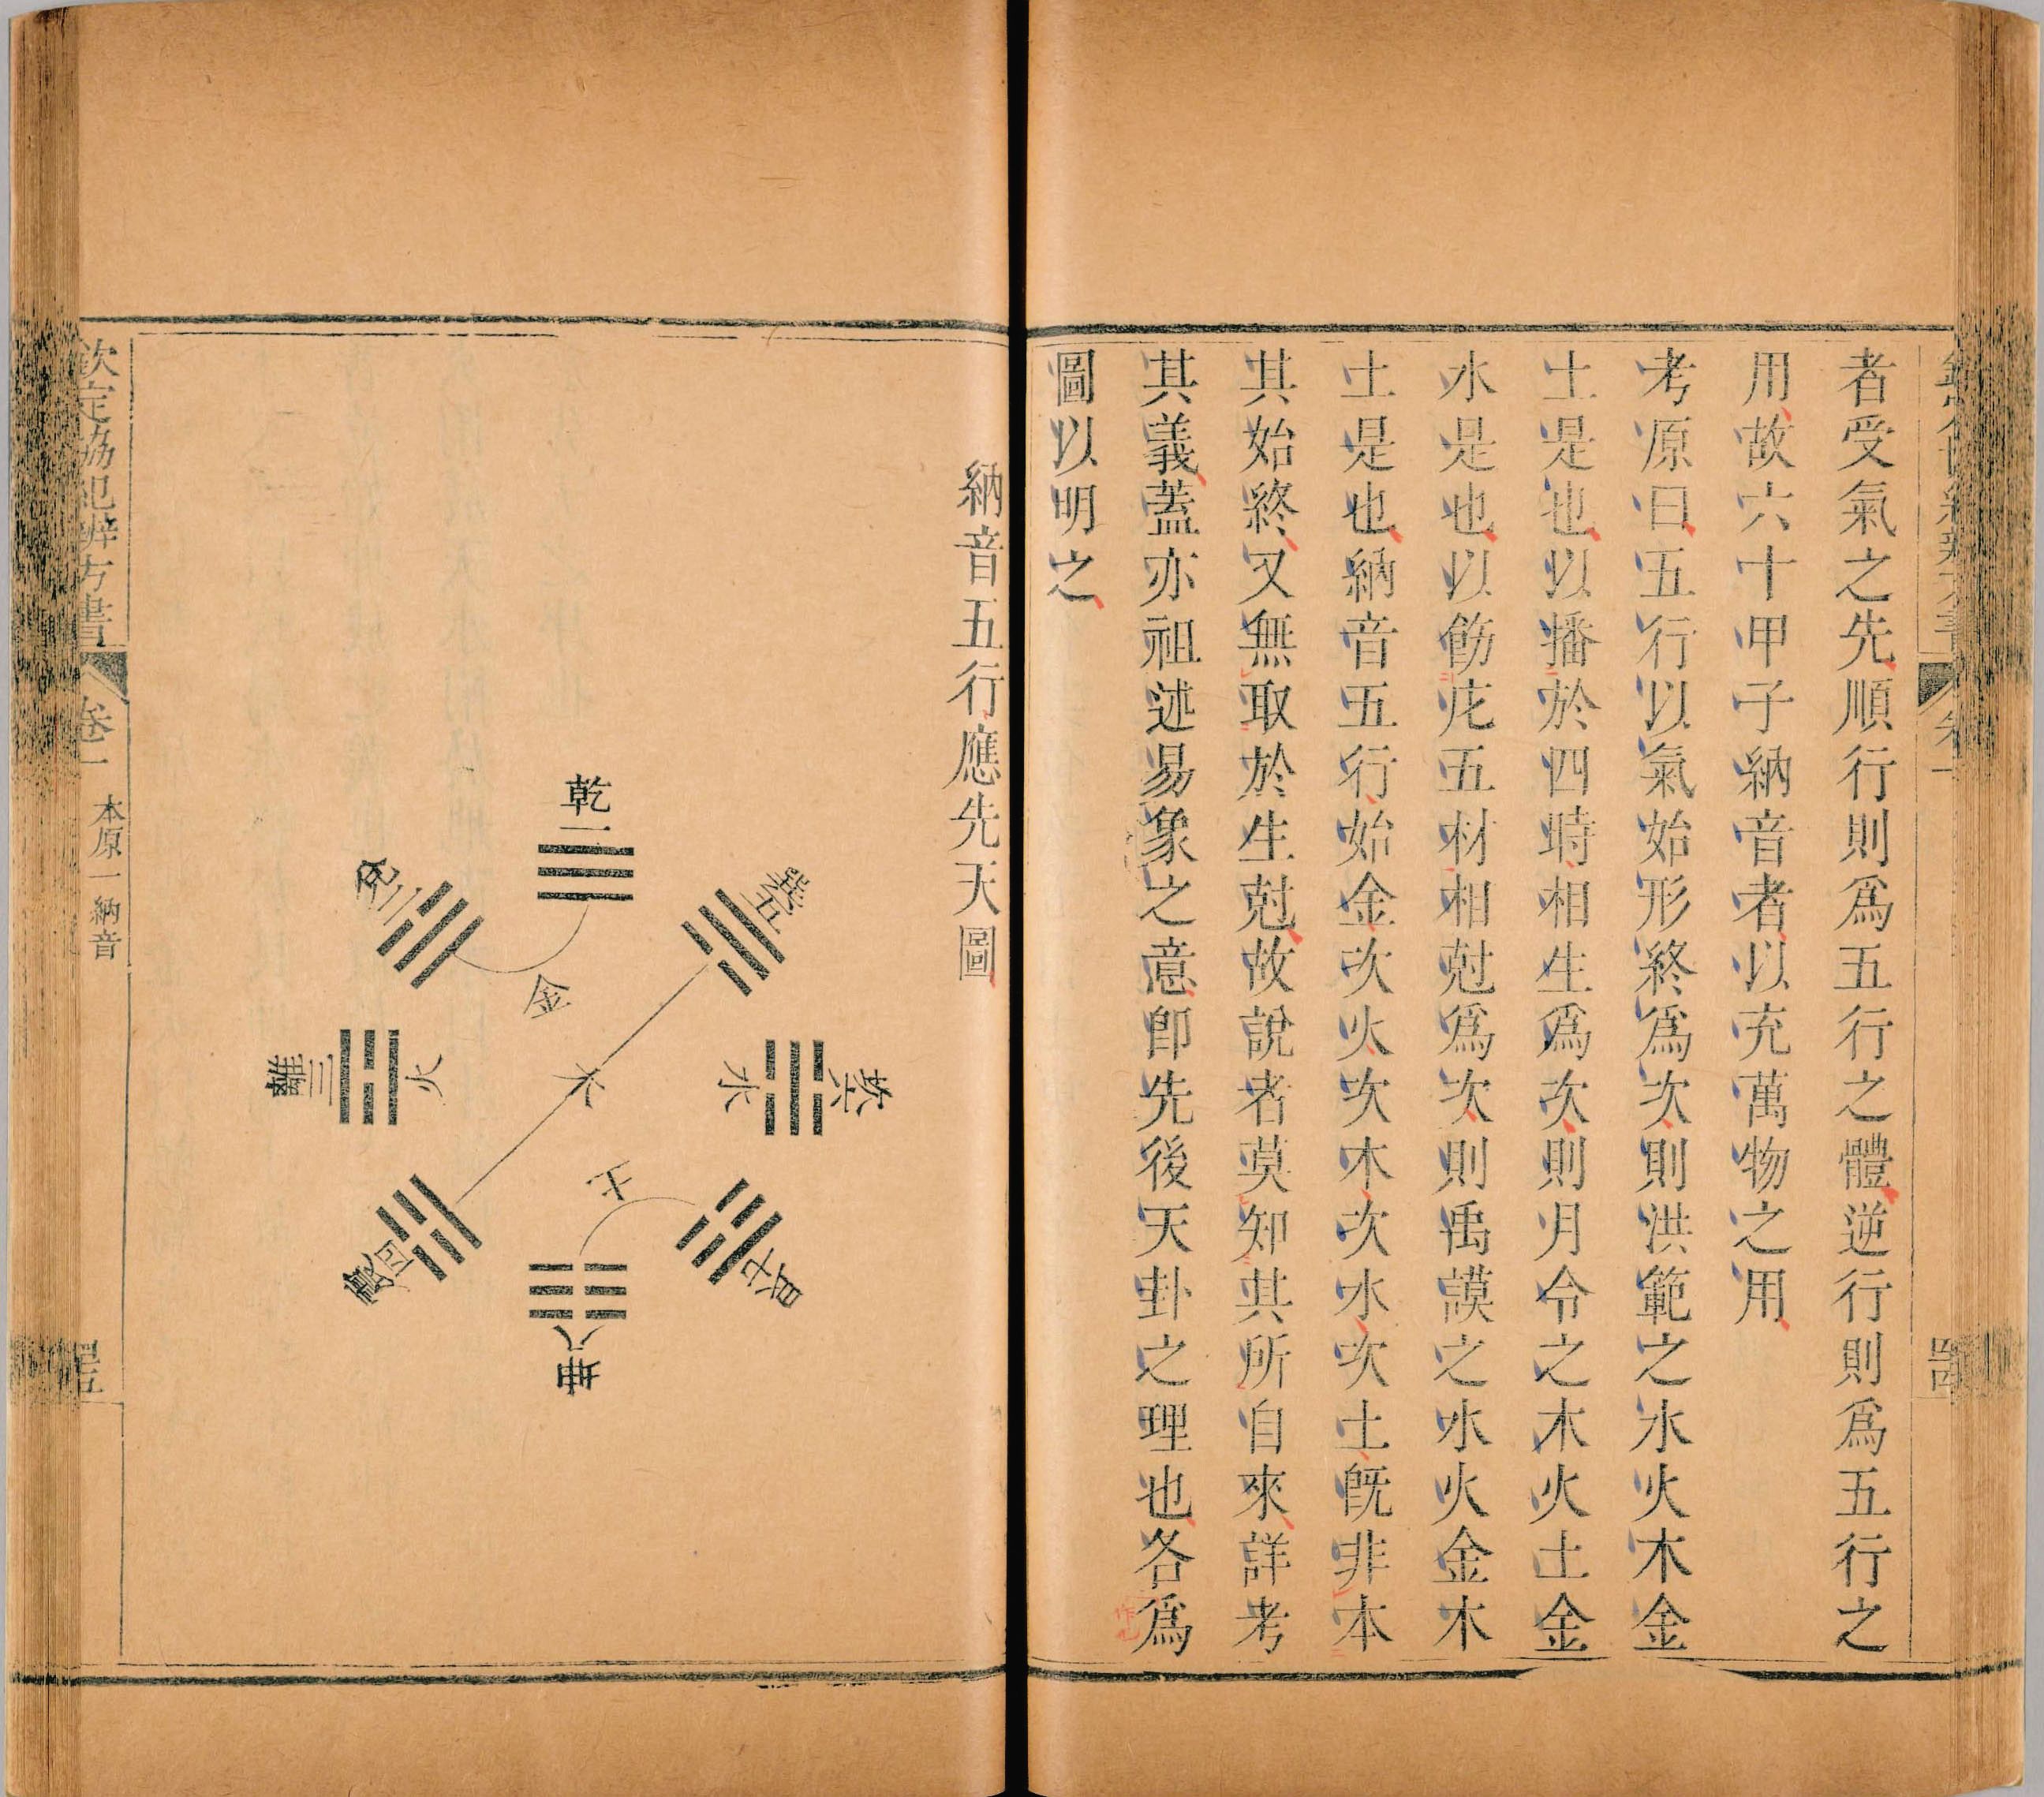 者受氣之先順行則爲五行之體逆行則爲五行之
用故六十甲子納音者以充萬物之用
考原曰五行以氣始形終爲次則洪範之水火木金
土是也以播於四時相生爲次則月令之木火土金
水是也以飭庀五材相尅爲次則禹謨之水火金木
土是也納音五行始金次火次木次水次土旣非本
其始終又無取於生尅故說者莫知其所自來詳考
其義蓋亦祖述易象之意卽先後天卦之理也各爲
圖以明之
作先
卷一
納音五行應先天圖
乾一
兌二
離三
震四
巽五
坎六
艮七
坤八
金
火
木
水
土
欽定協紀辨方書
卷一
本原一納音